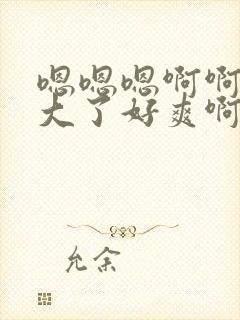 嗯嗯嗯啊啊
大了好爽啊
允余